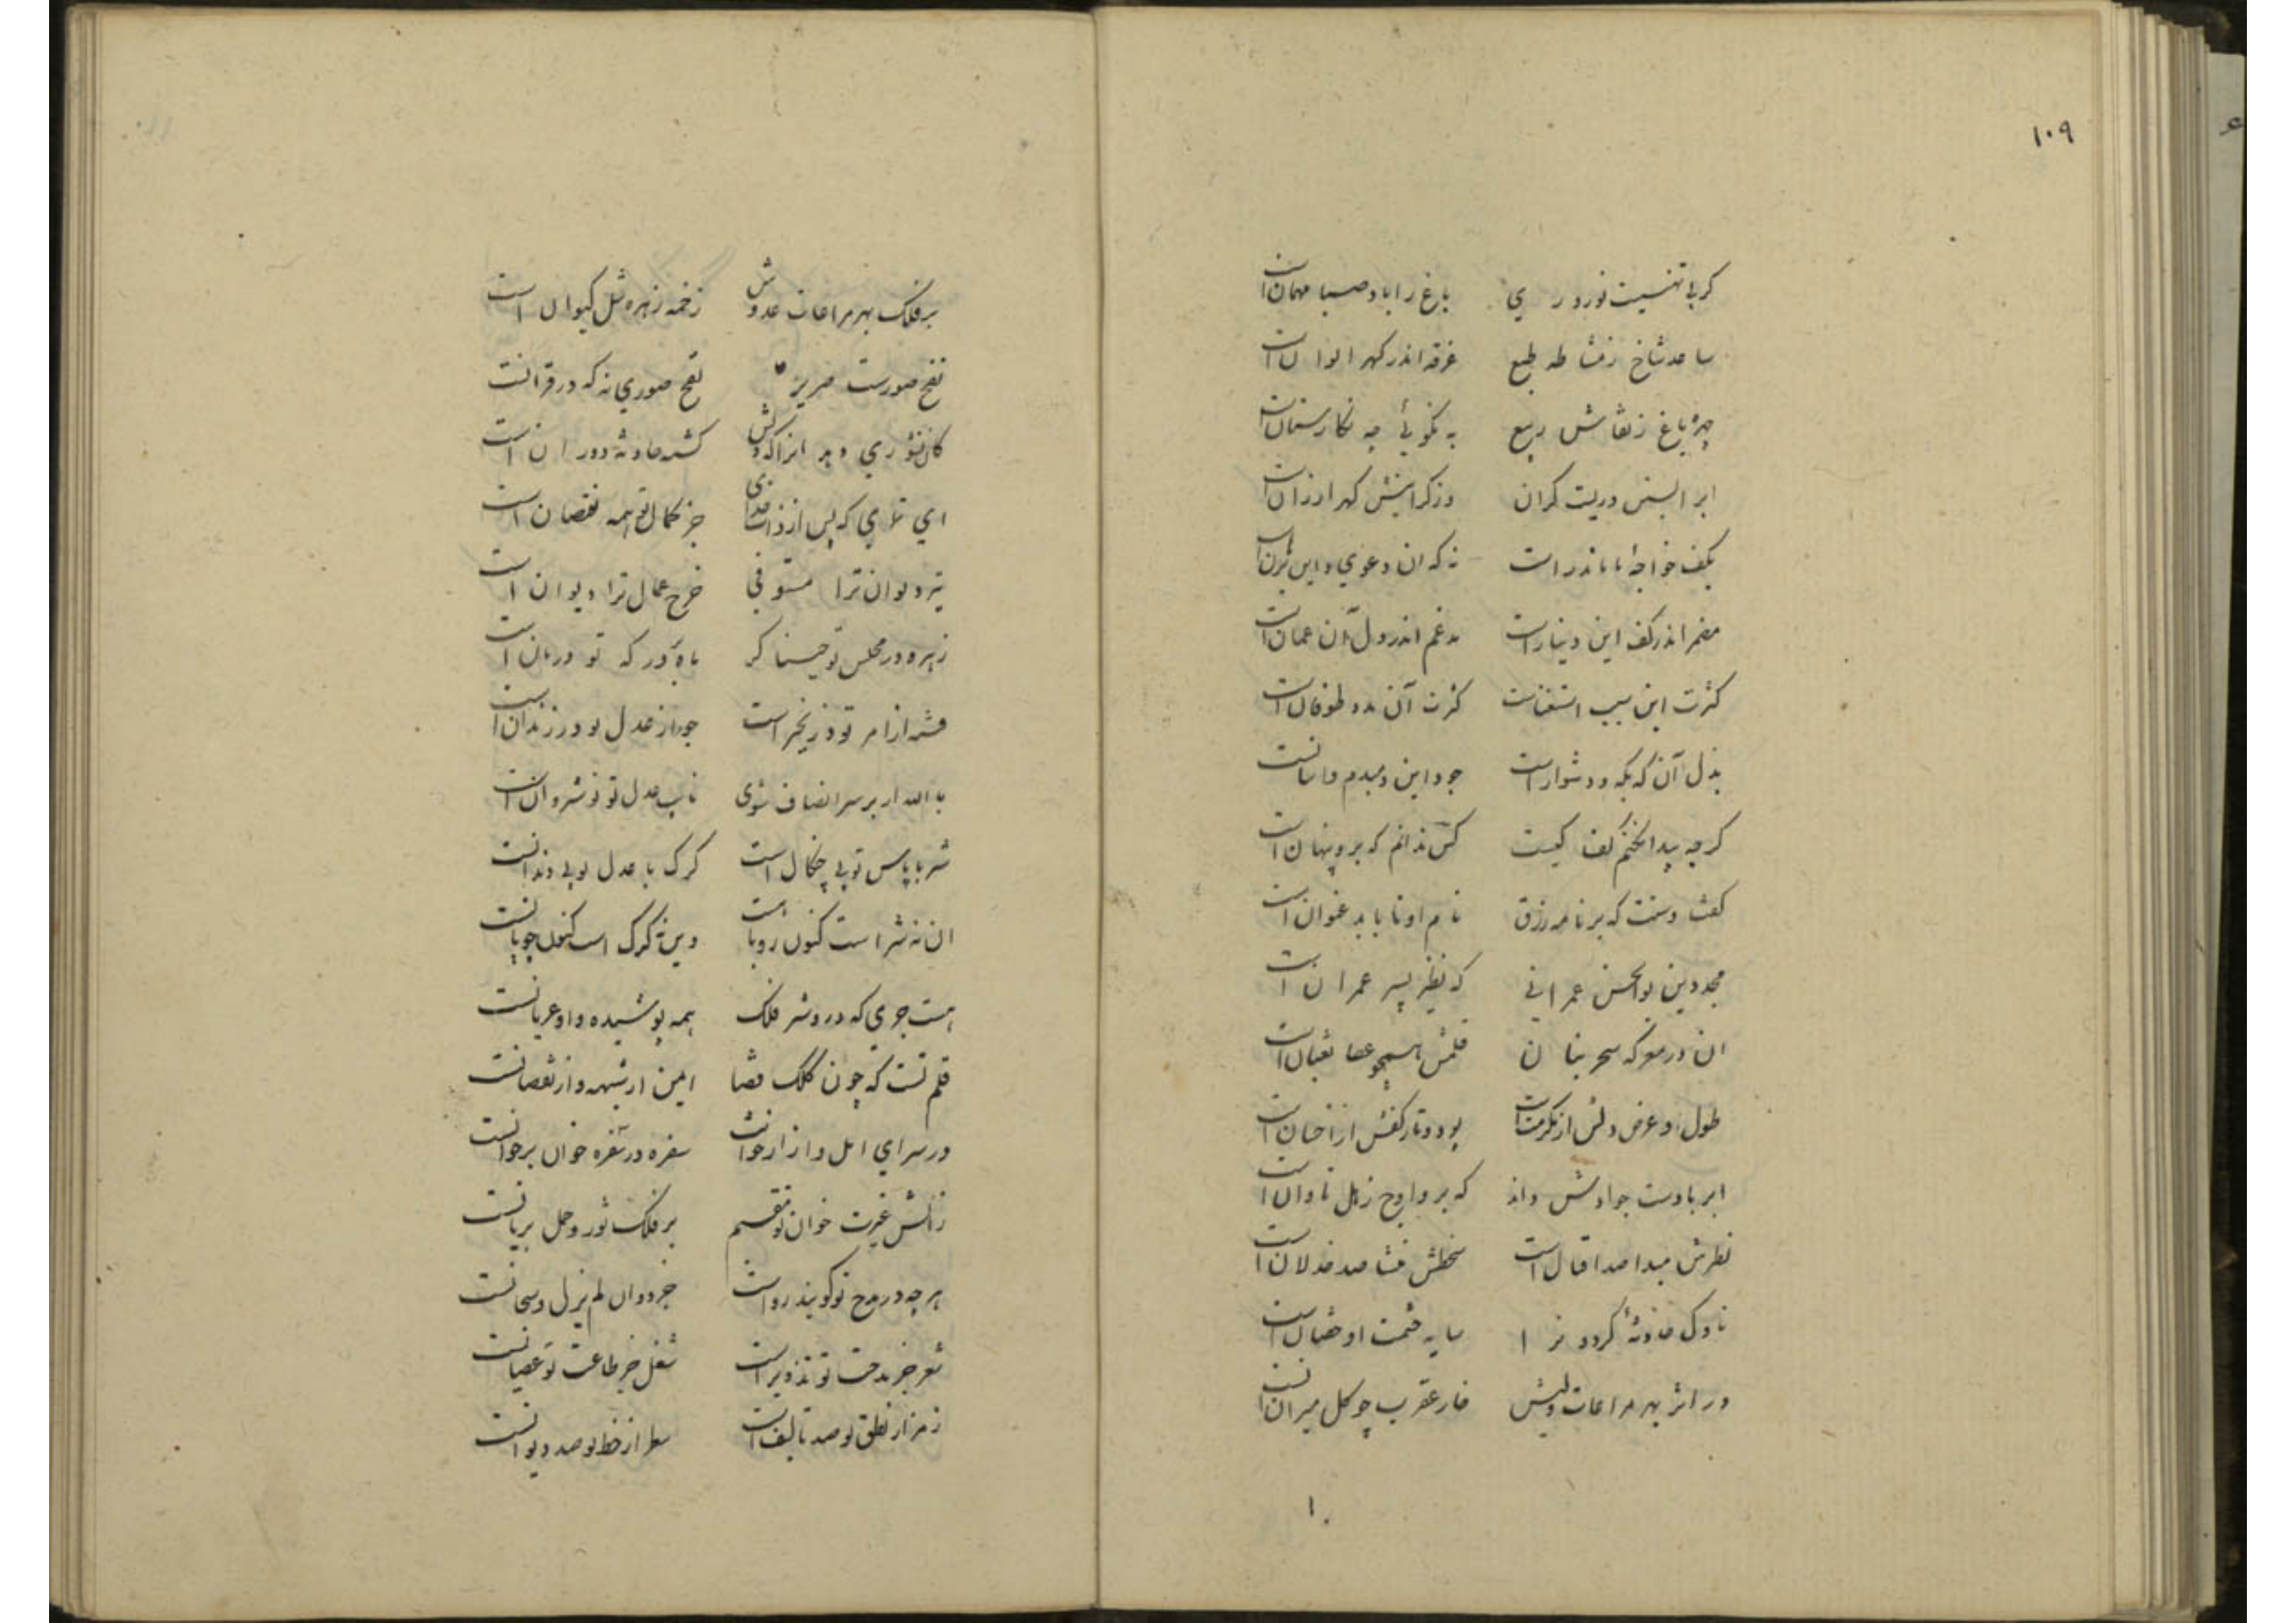 ۱۰۹
کر پی تهنیت نوروزی باغ را باد صبا مهمان است
ساعد شاخ ز مشاطه طبع غرقه اندر کهر الوان است
چهره باغ ز نقاش ربیع به نکوئی چه نکارستان است
ابر آبستن دریست کران وز کرانیش کهر ارزان است
بکف خواجه ما ماند راست نه که آن دعوی و این برهان است
مضمر اندر کف این دینار است مدغم اندر دل آن عمان است
کثرت این سبب استغناست کثرت آن مدد طوفان است
بذل آن که بکه و دشوار است جود این دمبدم و آسانست
کرچه پیدا نکنم کف کیست کس ندانم که برو پنهان است
کف دستست که بر نامه رزق نام او تا بابد عنوان است
مجد دین بوالحسن عمرانی که نظیر پسر عمران است
آن در معرکه سحر بنان قلمش همچو عصا ثعبان است
طول و عرض دلش از مکرمت است پود و تار کفش از احسان است
ابر با دست جوادش داند که برو اوج زحل تاوان است
نظرش مبدا صد اقبال است سخطش منشا صد خذلان است
ناوک حادثهٔ کردون را سایه حشمت او خفتان است
در اثر بهر مراعات ولیش خار عقرب چو کل میزان است
بر فلک بهر مراعات عدوش زخمه زهره شل کیوان است
نفخ صورست صریر نفخ صوری نه که در قرآنست
کان نشوری دهد آنرا که دلش کشته حادثه دوران است
ای تمامی که پس از ذات خدای جز کمال تو همه نقصان است
تیر دیوان ترا مستوفی خرج عمال ترا دیوان است
زهره در مجلس تو خنیاکر ماه در که تو دربان است
فتنه از امر تو در زنجیر است جور از عدل تو در زندان است
بالله ار بر سر انصاف شوی نایب عدل تو نوشروان است
شیر با پاس تو بی چنکال است کرک با عدل تو بی دندانست
آن نه شیر است کنون روباه است وین نه کرک است کنون چوپانست
هست جرمی که درو شیر فلک همه پوشیده و او عریانست
قلم تست که چون کلک قضا ایمن از شبهه و از نقصانست
در سرای امل و از آز خوانت سفره در سفره خوان بر خوانست
ز آتش غیرت خوان تو مقیم بر فلک ثور و حمل بریانست
هر چه در مدح تو کویند رواست جز دو ان لم یزل و سبحانست
شعر جز مدحت تو تزویر است شغل جز طاعت تو عصیانست
رمز از نطق تو صد تالیف است سطر از خط تو صد دیوانست